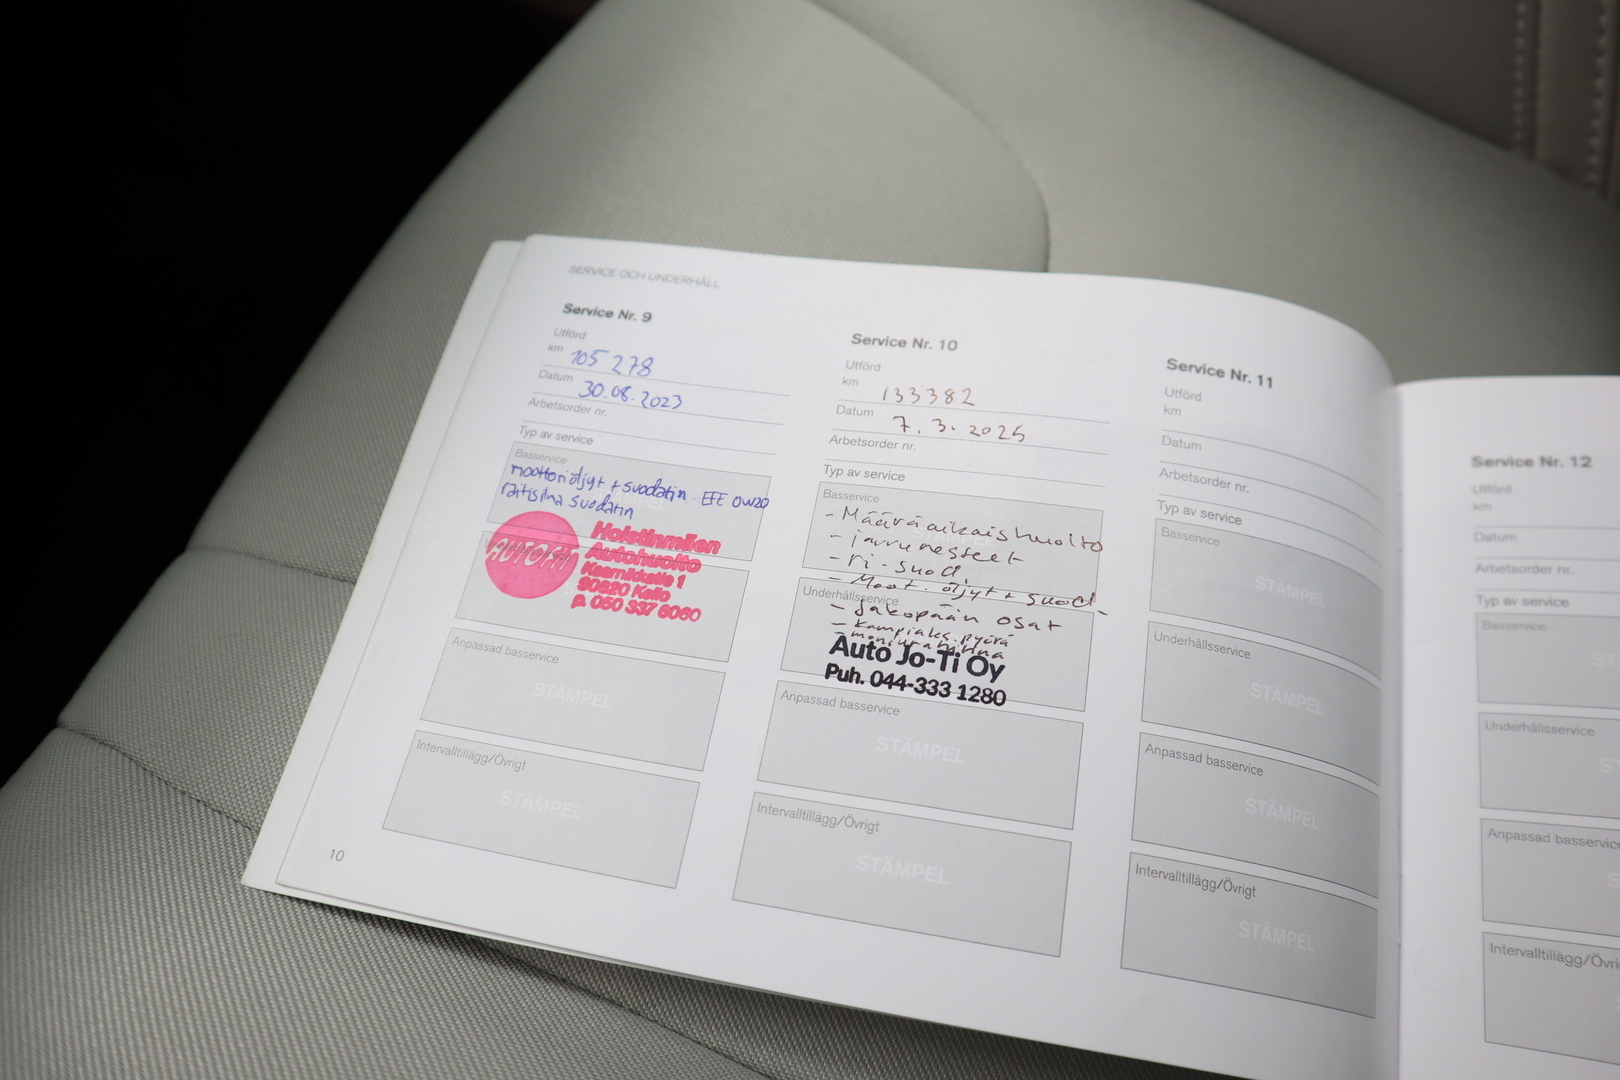 SERVICE OCH UNDERHÅLL
Service Nr. 9
Utförd
km 105 278
Datum 30.08.2023
Arbetsorder nr.
Typ av service
Basservice
moottoriöljyt + suodatin EFE 0W20
raitisilma suodatin
AUTOFIT
Holstinmäen
Autohuolto
Kaarnikkatie 1
90820 Kello
p. 050 337 6060
Anpassad basservice
STÄMPEL
Intervalltillägg/Övrigt
STÄMPEL
10
Service Nr. 10
Utförd
km 133382
Datum 7.3.2025
Arbetsorder nr.
Typ av service
Basservice
- Määräaikaishuolto
- jarrunesteet
- ri-suod.
- Moot. öljyt + suod.
Underhållsservice
- Jakopään osat
- kampiaks. pyörä
Auto Jo-Ti Oy
Puh. 044-333 1280
Anpassad basservice
STÄMPEL
Intervalltillägg/Övrigt
STÄMPEL
Service Nr. 11
Utförd
km
Datum
Arbetsorder nr.
Typ av service
Basservice
STÄMPEL
Underhållsservice
STÄMPEL
Anpassad basservice
STÄMPEL
Intervalltillägg/Övrigt
STÄMPEL
Service Nr. 12
Utförd
km
Datum
Arbetsorder nr.
Typ av service
Basservice
Underhållsservice
Anpassad basservice
Intervalltillägg/Övri